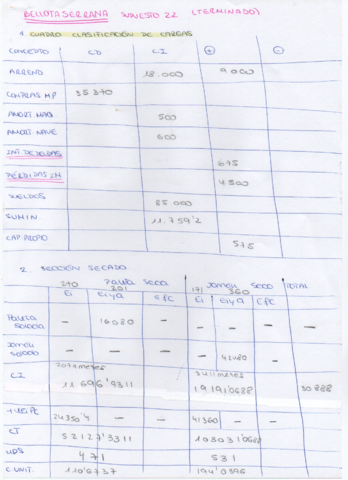 BELLOTA SERRANA SUPUESTO 22 (TERMINADO)
1. CUADRO CLASIFICACIÓN DE CARGAS
CONCEPTO CD CI + -
ARREND 18.000 9000
COMPRAS MP 35370
AMORT MAQ 500
AMORT NAVE 600
INT. DEUDAS 675
PÉRDIDAS IN 4500
SUELDOS 85.000
SUMIN 11.759'2
CAP. PROPIO 575
2. SECCIÓN SECADO
270 Paleta Seca 201 171 Jamón Seco 360 TOTAL
Ei EiyA EfC Ei EiyA EfC
Paleta salada - 16080 - - - -
Jamón salado - - - - 42480 -
CI 11696'9311 19191'0688 30888
24350'4 - - 41360 - -
CT 52127'3311 103031'0688
UDS 471 531
C. UNIT. 110'6737 194'0396